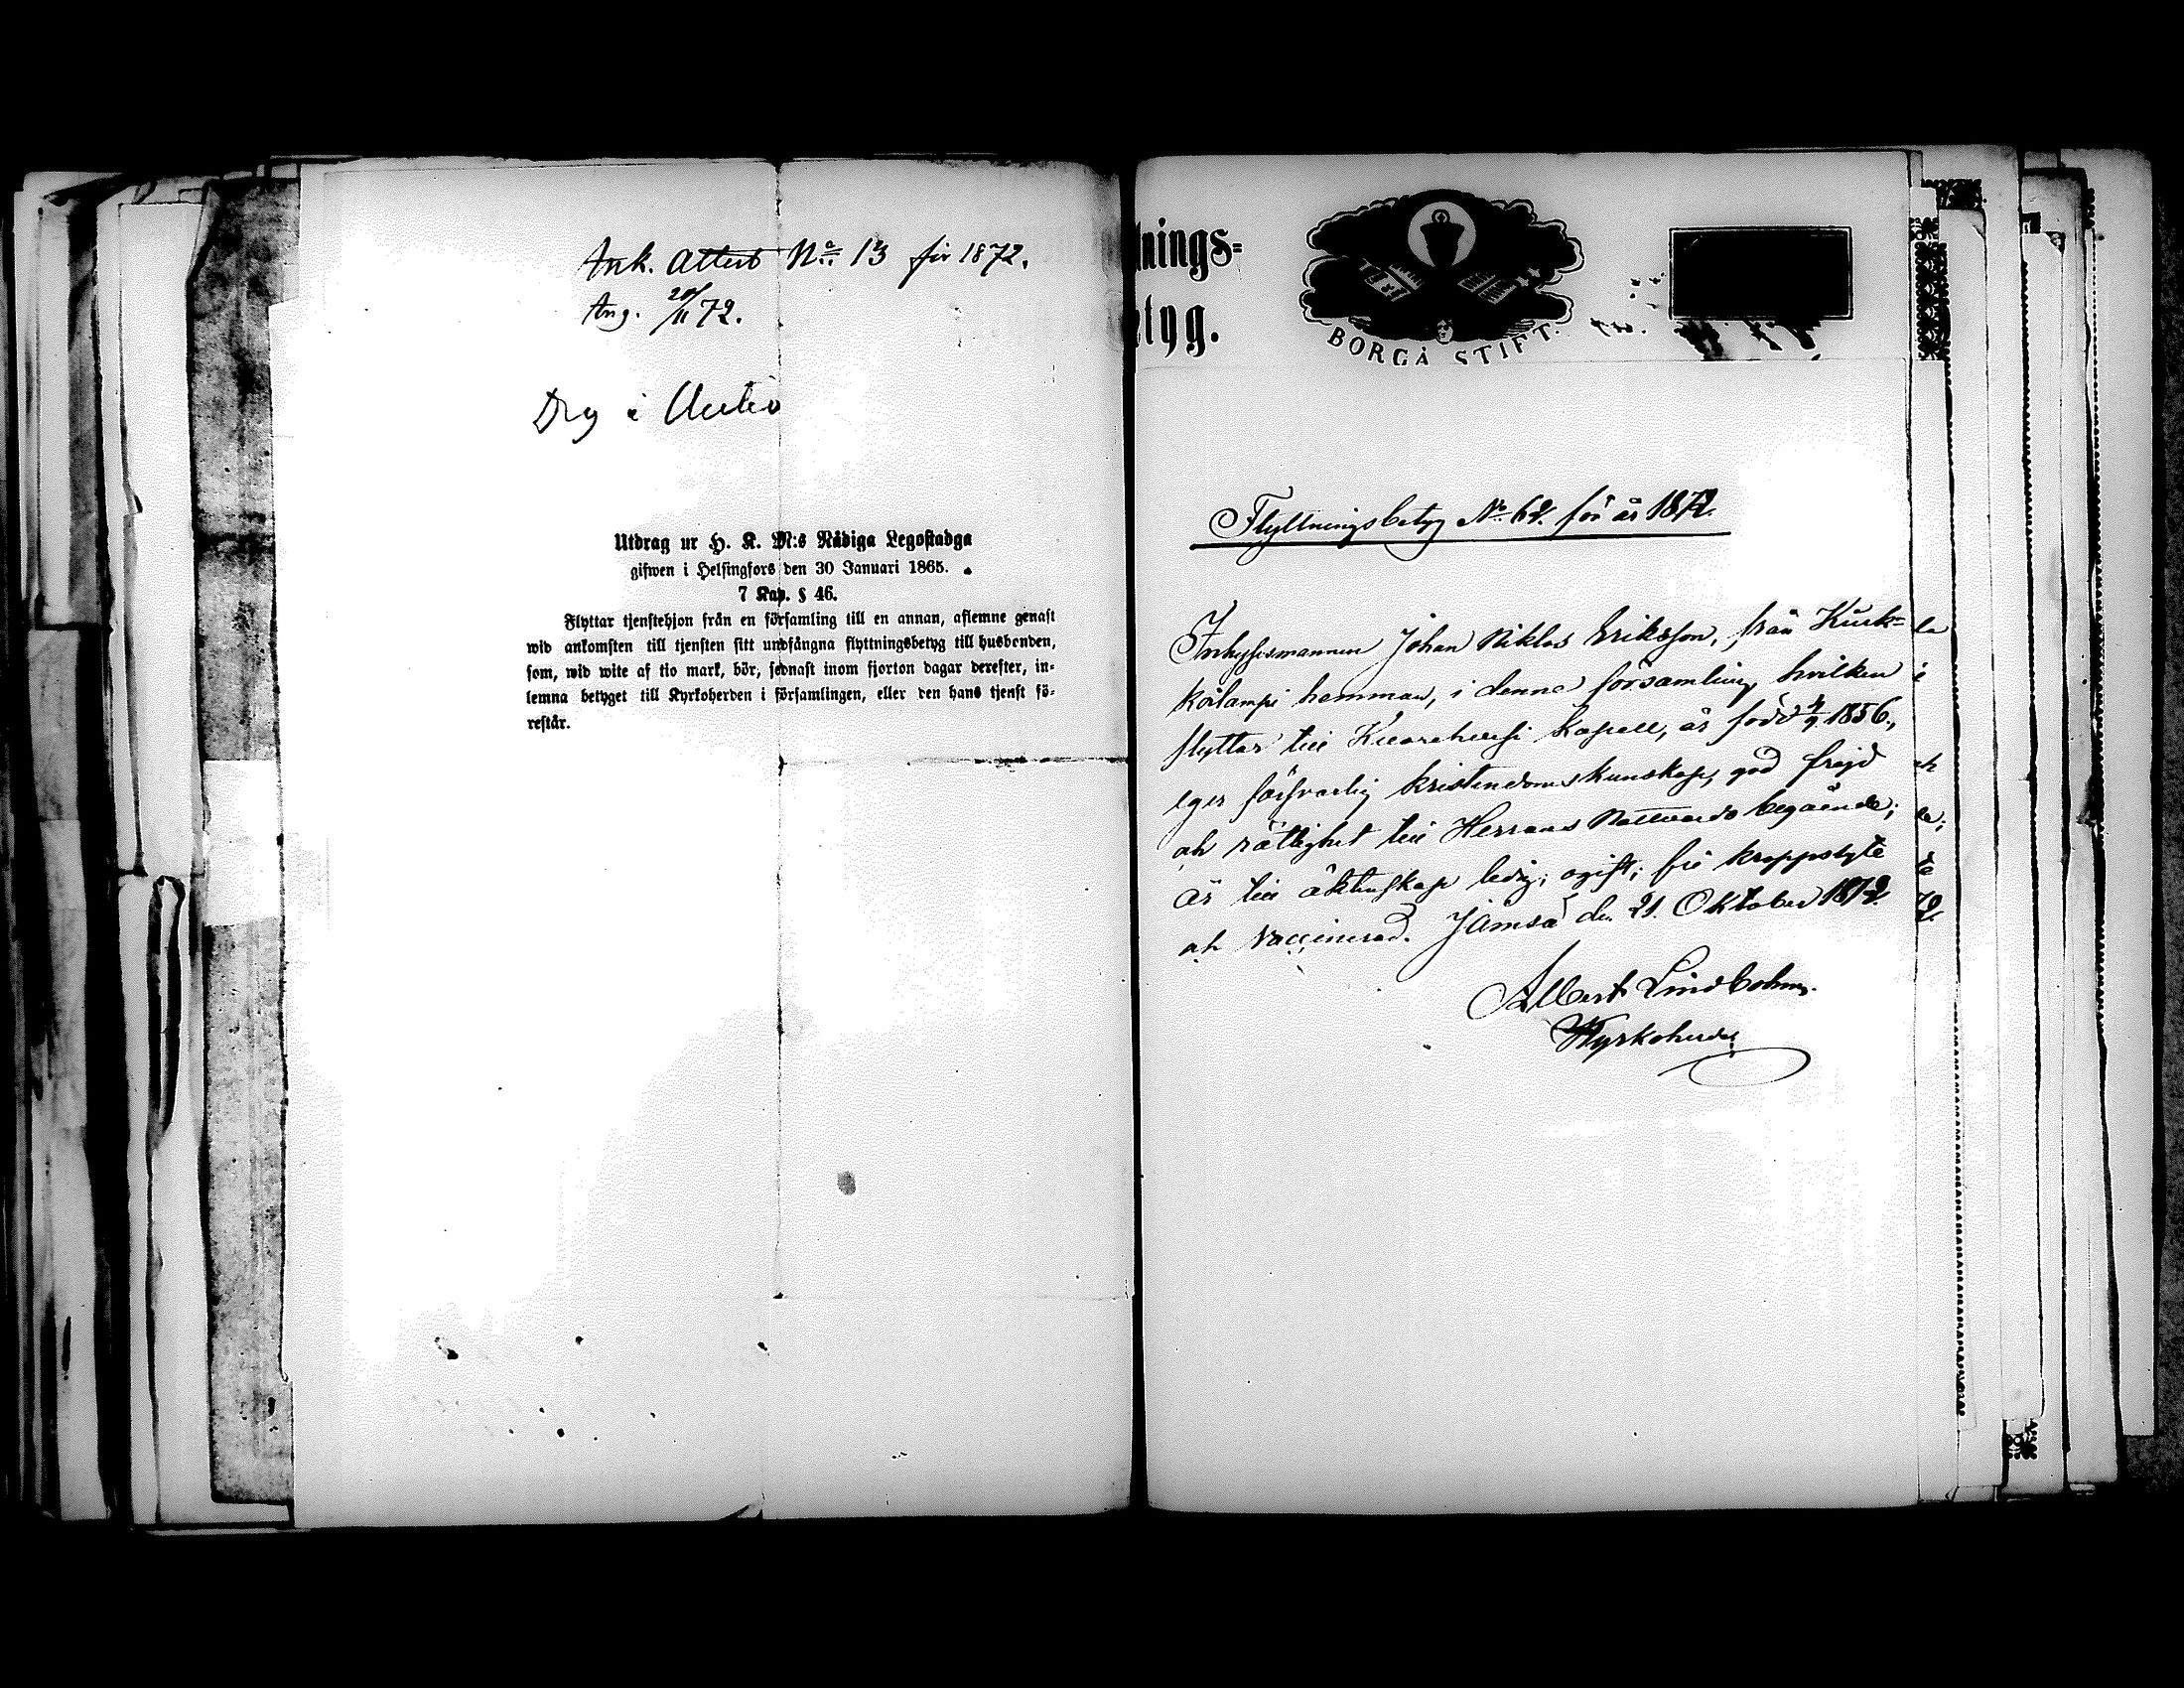 Ank. Attest No 13 för 1872.
Ang. 20/11 72.
Drg i Autio
Utdrag ur H. K. M:s Nådiga Legostadga
gifwen i Helsingfors den 30 Januari 1865.
7 Kap. § 46.
Flyttar tjenstehjon från en församling till en annan, aflemne genast
wid ankomsten till tjensten sitt undfångna flyttningsbetyg till husbonden,
som, wid wite af tio mark, bör, sednast inom fjorton dagar derefter, in-
lemna betyget till Kyrkoherden i församlingen, eller den hans tjenst fö-
restår.
nings-
tyg.
BORGÅ STIFT.
Flyttningsbetyg No 62. för år 1872.
Inhysesmannen Johan Niklas Eriksson, från Kurk-
koilampi hemman, i denna församling, hvilken
flyttar till Kuorehvesi kapell, är född 4/9 1856,
eger försvarlig kristendomskunskap, god frejd
och rättighet till Herrans Nattvards begående;
är till äktenskap ledig; ogift; fri kroppslyte
och vaccinerad. Jämsä den 21. Oktober 1872.
Albert Lindbohm.
Kyrkoherde